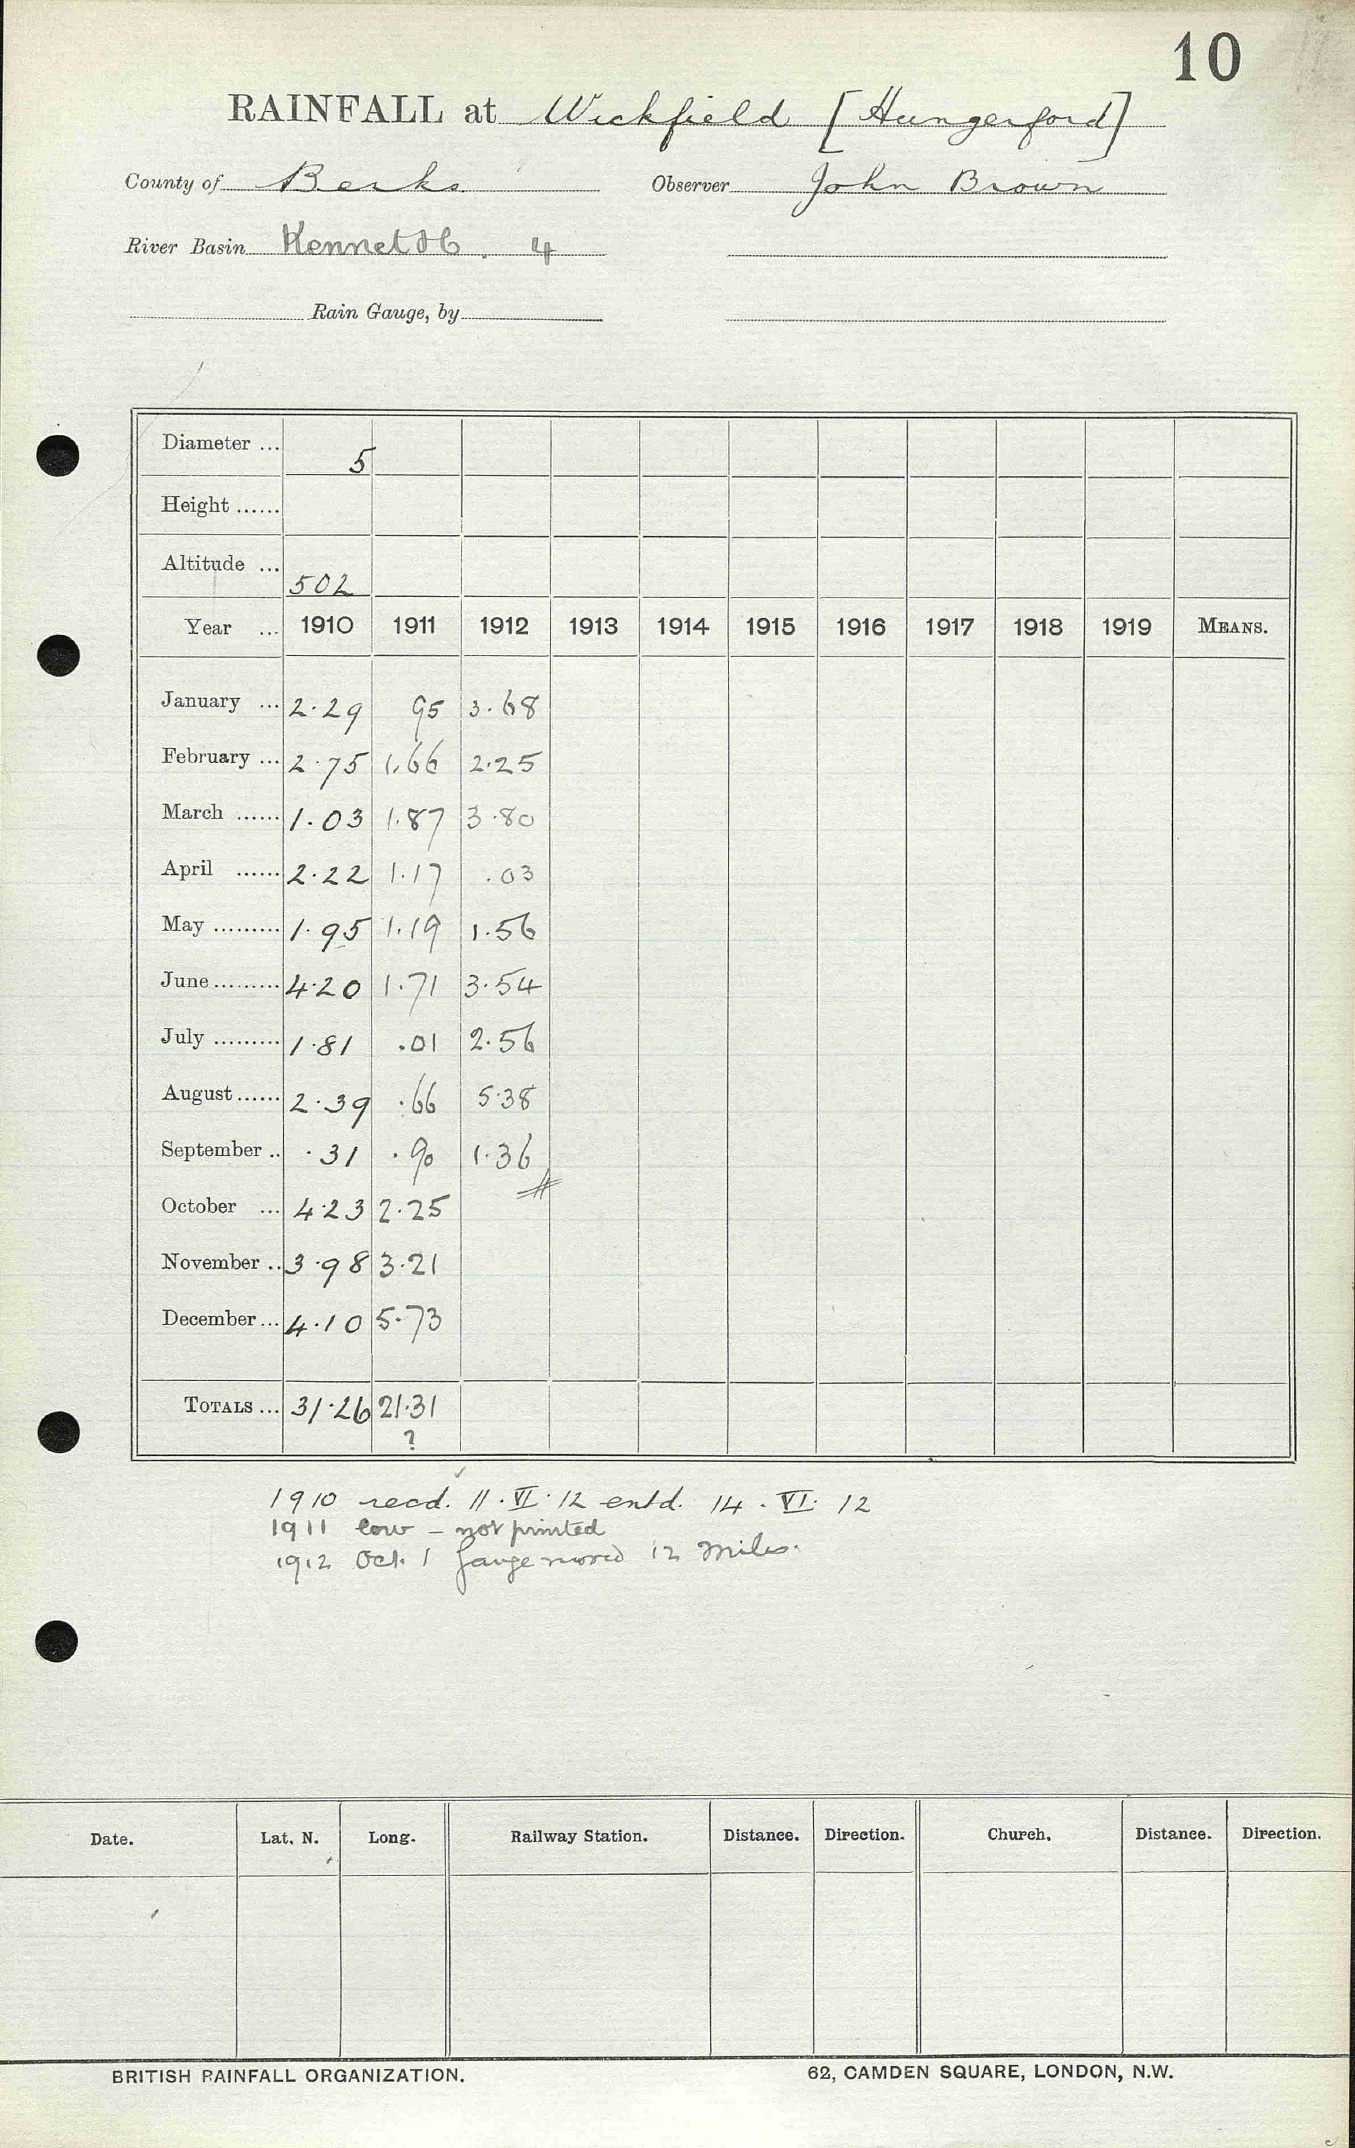 10
RAINFALL at Wickfield [Hungerford]
County of Berks Observer John Brown
River Basin Kennet 4
Rain Gauge, by
Diameter ... 5
Height ......
Altitude ... 502
Year ... 1910 1911 1912 1913 1914 1915 1916 1917 1918 1919 MEANS.
January ... 2.29 95 3.68
February ... 2.75 1.66 2.25
March ...... 1.03 1.87 3.80
April ...... 2.22 1.17 .03
May ......... 1.95 1.19 1.56
June ......... 4.20 1.71 3.54
July ......... 1.81 .01 2.56
August ...... 2.39 .66 5.38
September .. .31 .90 1.36
October ... 4.23 2.25
November .. 3.98 3.21
December ... 4.10 5.73
TOTALS ... 31.26 21.31
?
1910 recd. 11.VI.12 entd. 14.VI.12
1911 low - not printed
1912 Oct. 1 gauge moved 12 miles.
Date. Lat. N. Long. Railway Station. Distance. Direction. Church. Distance. Direction.
BRITISH RAINFALL ORGANIZATION. 62, CAMDEN SQUARE, LONDON, N.W.